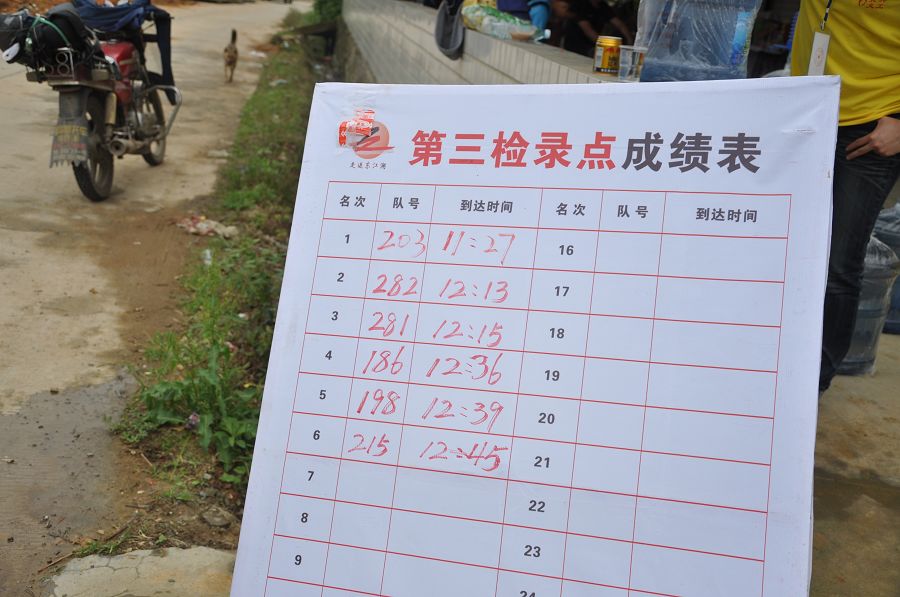 走进东江湖
第三检录点成绩表
名次 队号 到达时间 名次 队号 到达时间
1 203 11:27 16
2 282 12:13 17
3 281 12:15 18
4 186 12:36 19
5 198 12:39 20
6 215 12:45 21
7 22
8 23
9 24